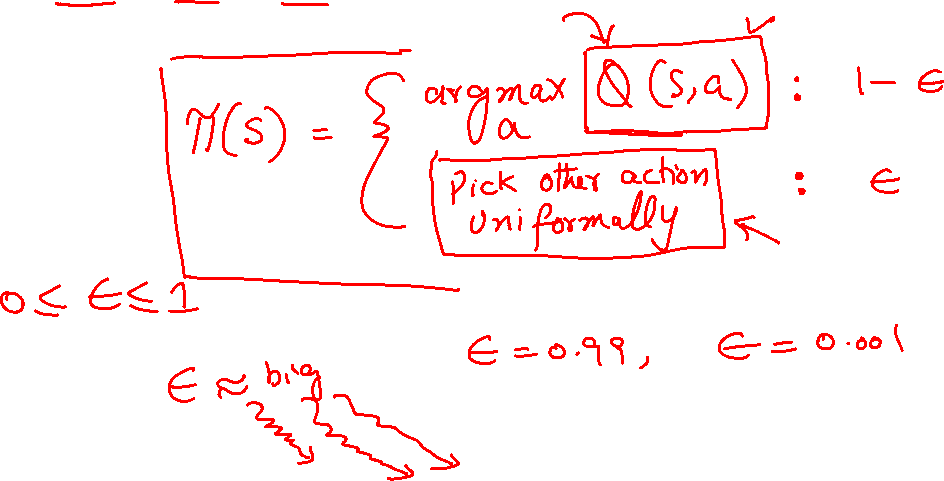 π(s) = { argmax Q(s,a) : 1 - ϵ
a
Pick other action : ϵ
uniformally
0 ≤ ϵ ≤ 1
ϵ = 0.99, ϵ = 0.001
ϵ ≈ big